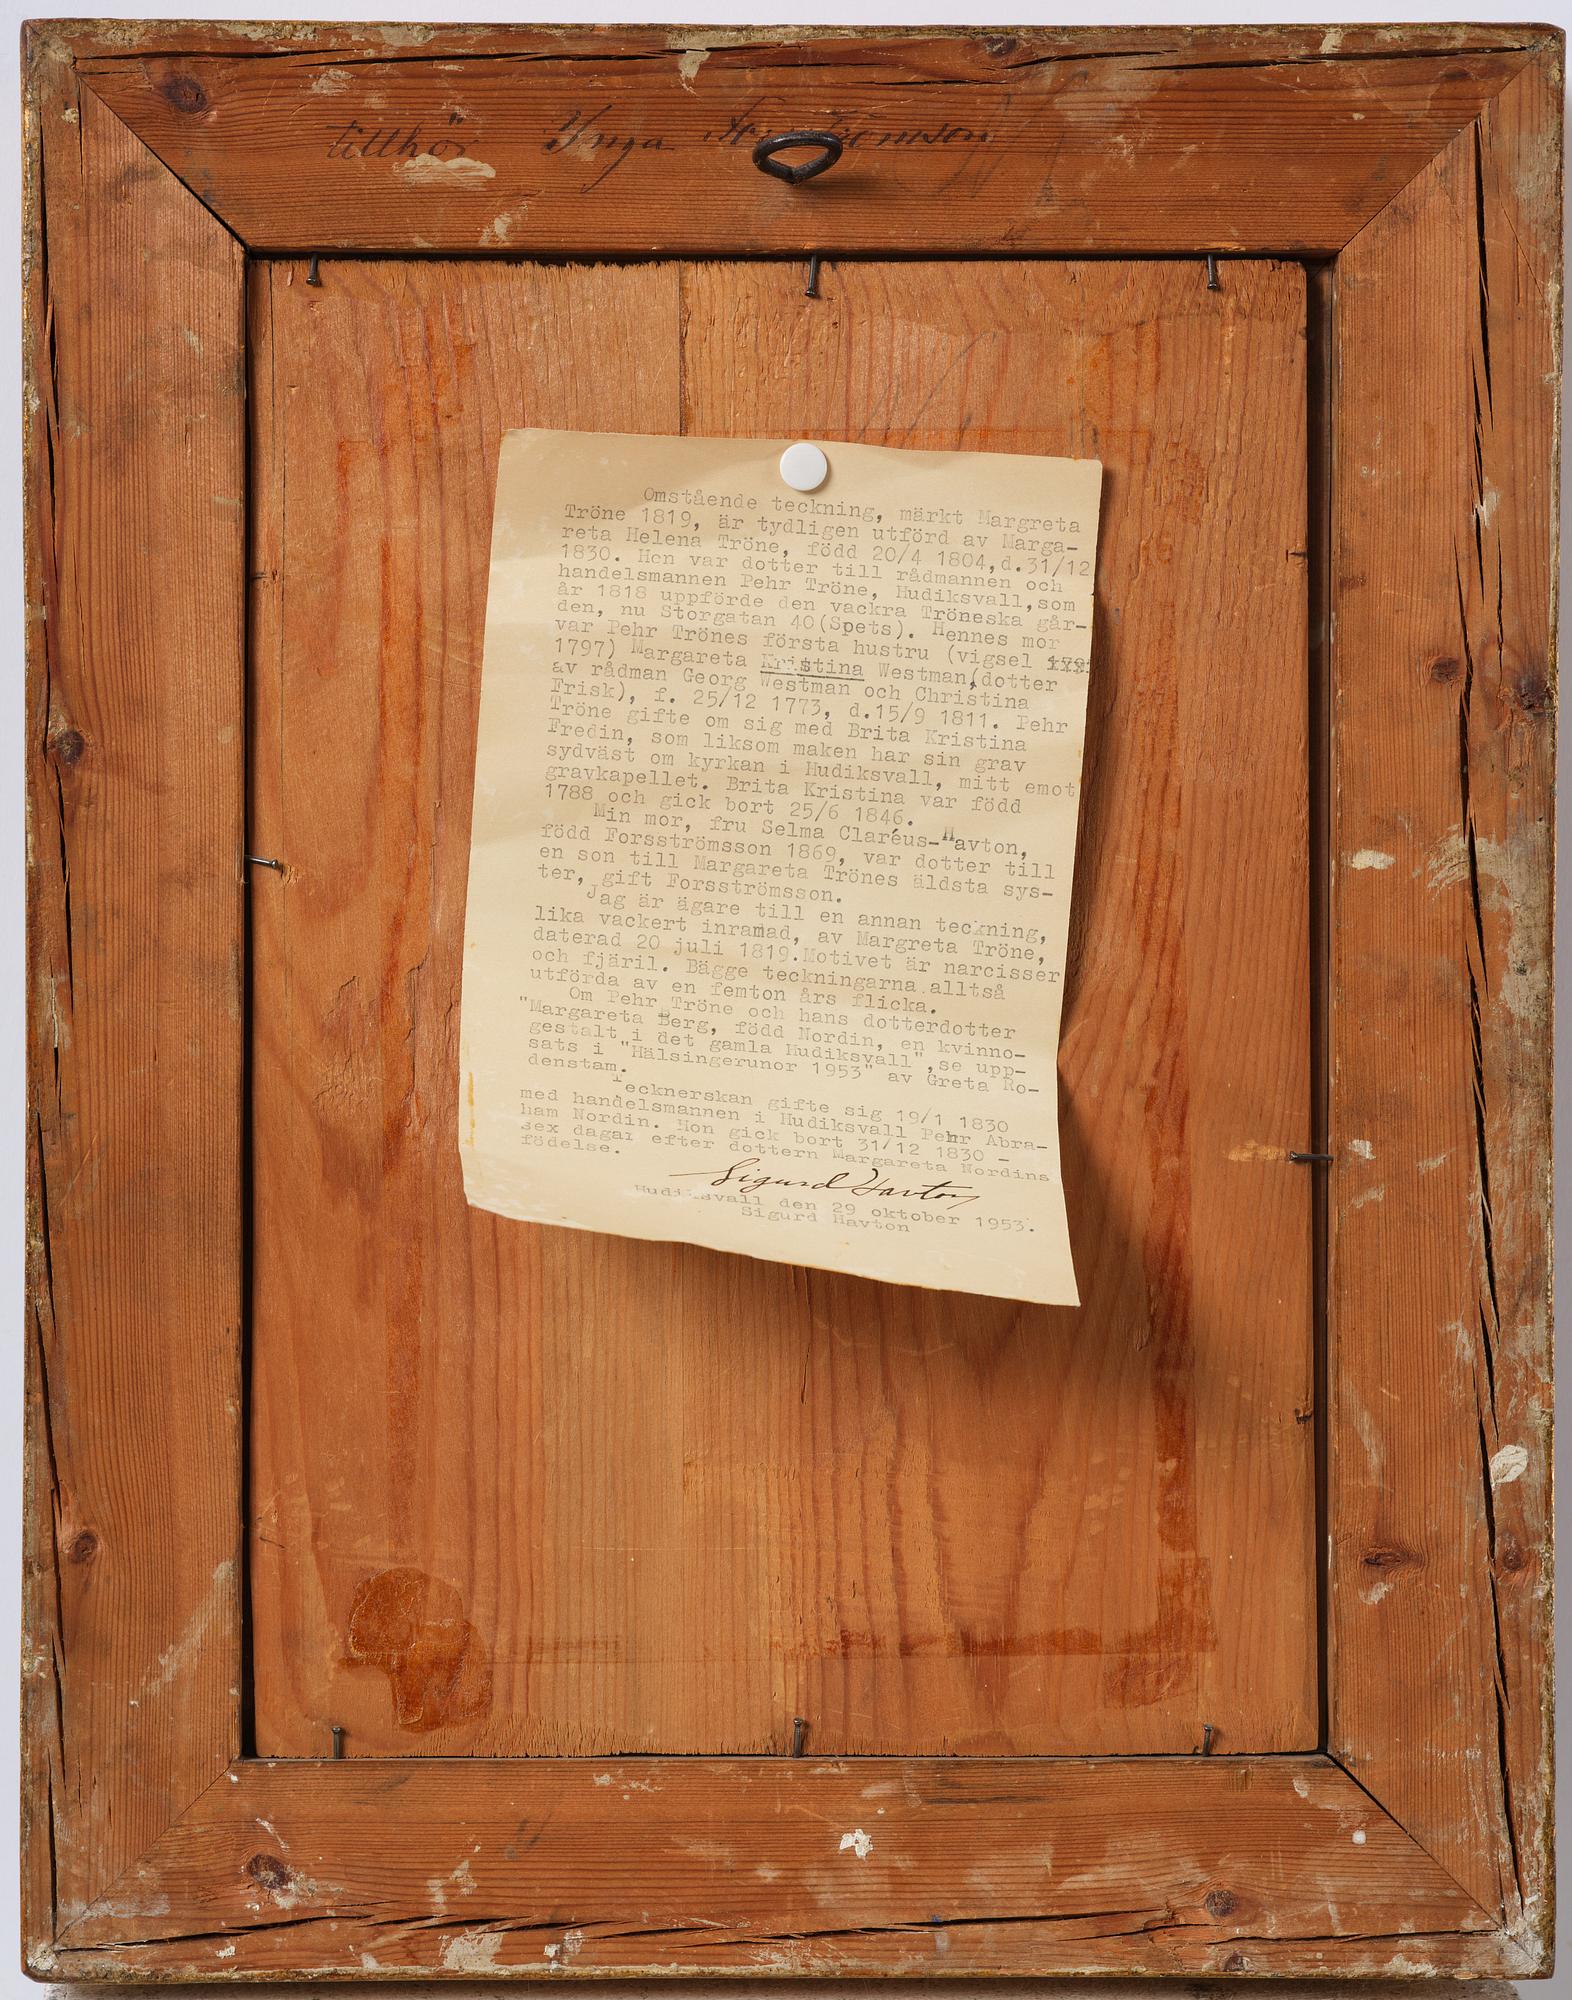 tillhör Ynga
Omstående teckning, märkt Margreta
Tröne 1819, är tydligen utförd av Marga-
reta Helena Tröne, född 20/4 1804,d.31/12
1830. Hon var dotter till rådmannen och
handelsmannen Pehr Tröne, Hudiksvall,som
år 1818 uppförde den vackra Tröneska går-
den, nu Storgatan 40(Spets). Hennes mor
var Pehr Trönes första hustru (vigsel
1797) Margareta Kristina Westman(dotter
av rådman Georg Westman och Christina
Frisk), f. 25/12 1773, d.15/9 1811. Pehr
Tröne gifte om sig med Brita Kristina
Fredin, som liksom maken har sin grav
sydväst om kyrkan i Hudiksvall, mitt emot
gravkapellet. Brita Kristina var född
1788 och gick bort 25/6 1846.
Min mor, fru Selma Claréus-Havton,
född Forsströmsson 1869, var dotter till
en son till Margareta Trönes äldsta sys-
ter, gift Forsströmsson.
Jag är ägare till en annan teckning,
lika vackert inramad, av Margreta Tröne,
daterad 20 juli 1819.Motivet är narcisser
och fjäril. Bägge teckningarna alltså
utförda av en femton års flicka.
Om Pehr Tröne och hans dotterdotter
"Margareta Berg, född Nordin, en kvinno-
gestalt i det gamla Hudiksvall",se upp-
sats i "Hälsingerunor 1953" av Greta Ro-
denstam.
Tecknerskan gifte sig 19/1 1830
med handelsmannen i Hudiksvall Pehr Abra-
ham Nordin. Hon gick bort 31/12 1830 -
sex dagar efter dottern Margareta Nordins
födelse.
Sigurd Havton
Hudiksvall den 29 oktober 1953.
Sigurd Havton